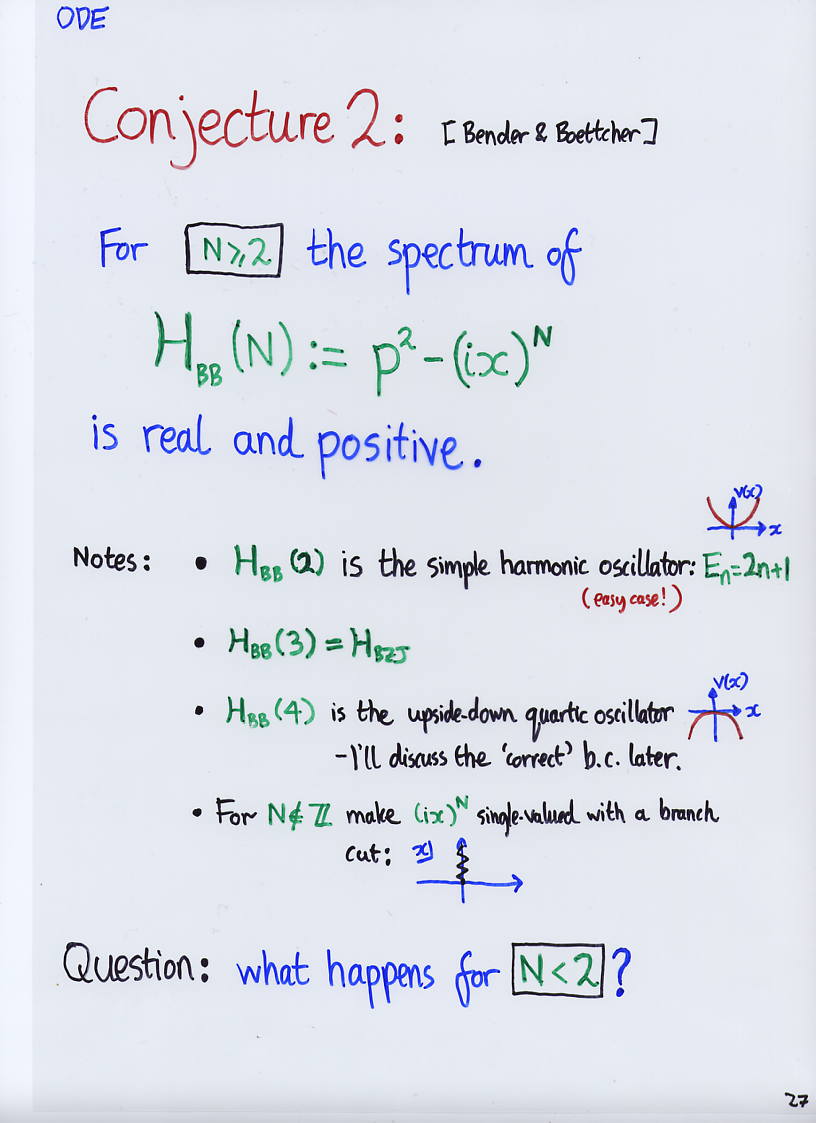 ODE
Conjecture 2: [Bender & Boettcher]
For N⩾2 the spectrum of
H_BB(N) := p² - (ix)^N
is real and positive.
V(x)
x
Notes: • H_BB(2) is the simple harmonic oscillator: E_n=2n+1
(easy case!)
• H_BB(3) = H_BZJ
V(x)
• H_BB(4) is the upside-down quartic oscillator x
-I'll discuss the 'correct' b.c. later.
• For N∉ℤ make (ix)^N single-valued with a branch
cut: x
Question: what happens for N<2?
27